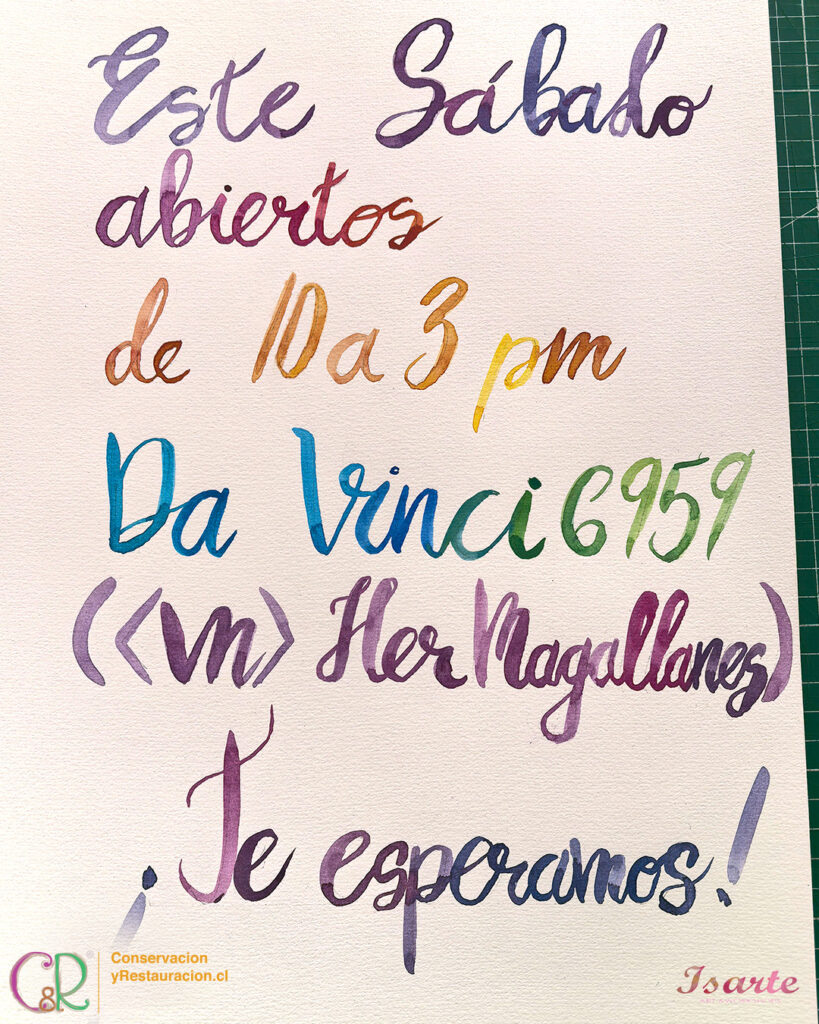 Este Sábado
abiertos
de 10 a 3 pm
Da Vinci 6959
(<vn> Her Magallanes)
¡Te esperamos!
C&R
Conservacion
yRestauracion.cl
Isarte